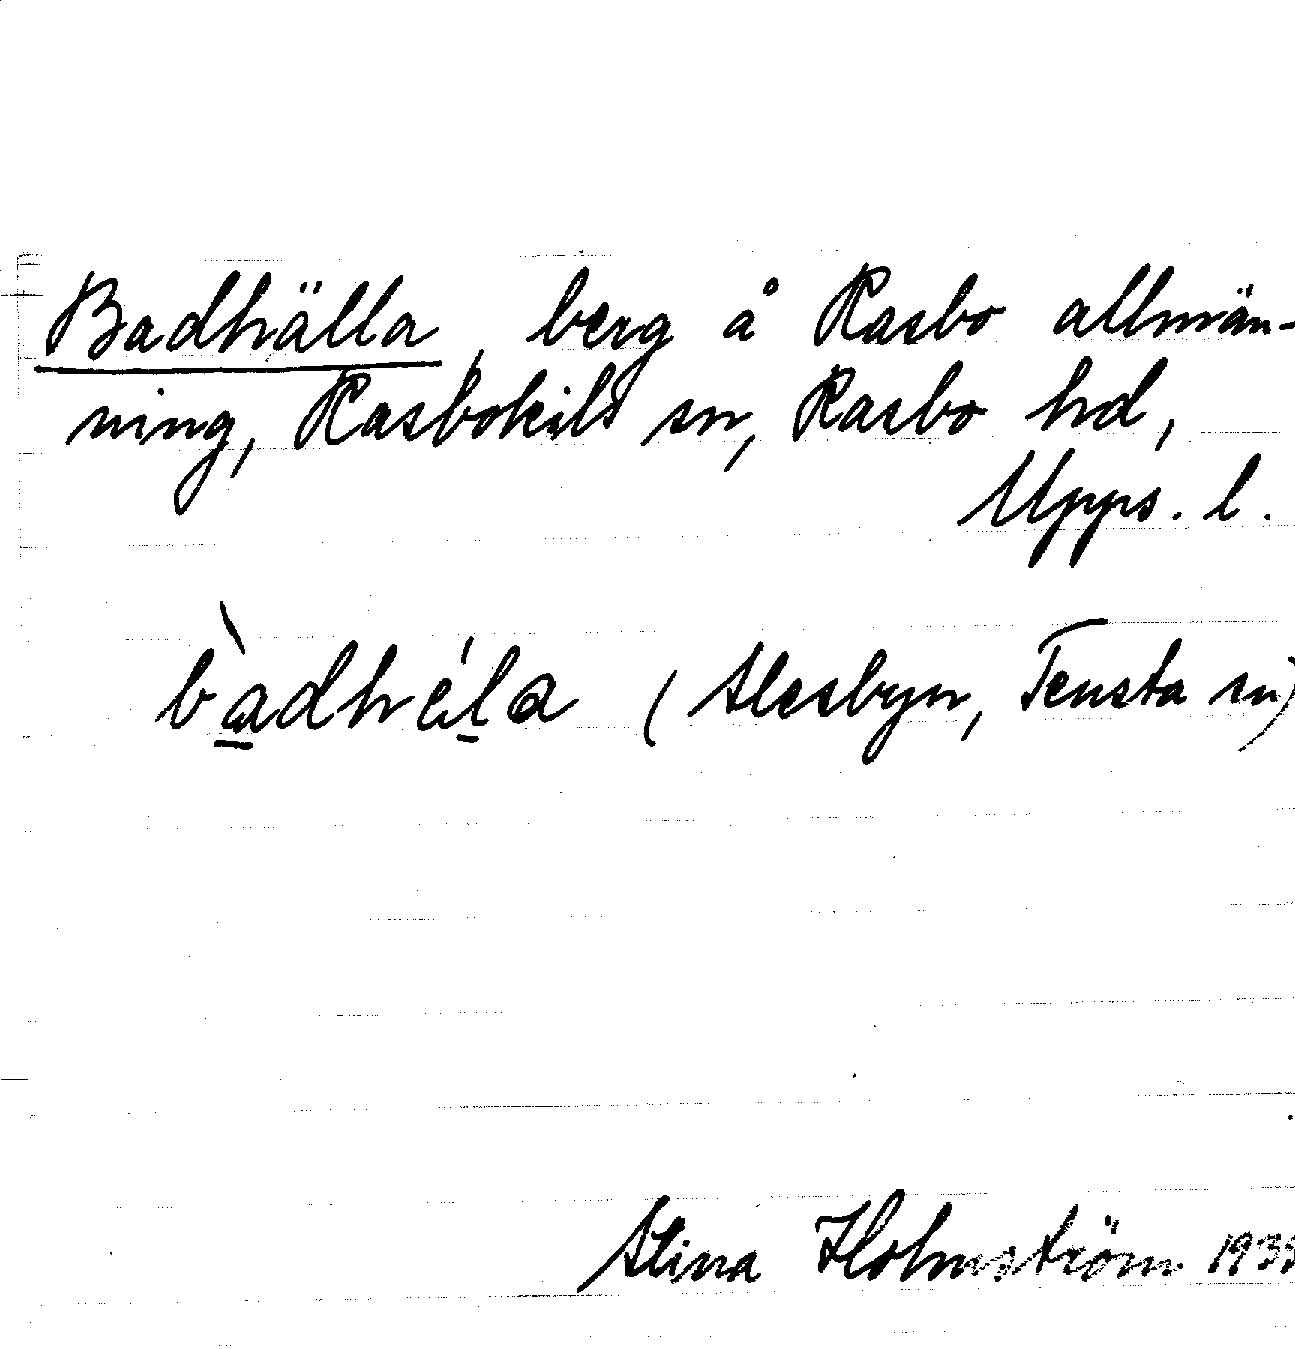 Badhälla, berg å Rasbo allmän-
ning, Rasbokils sn, Rasbo hd,
Upps. l.
bàdhéla (Alesbyn, Tensta sn)
Stina Holmström